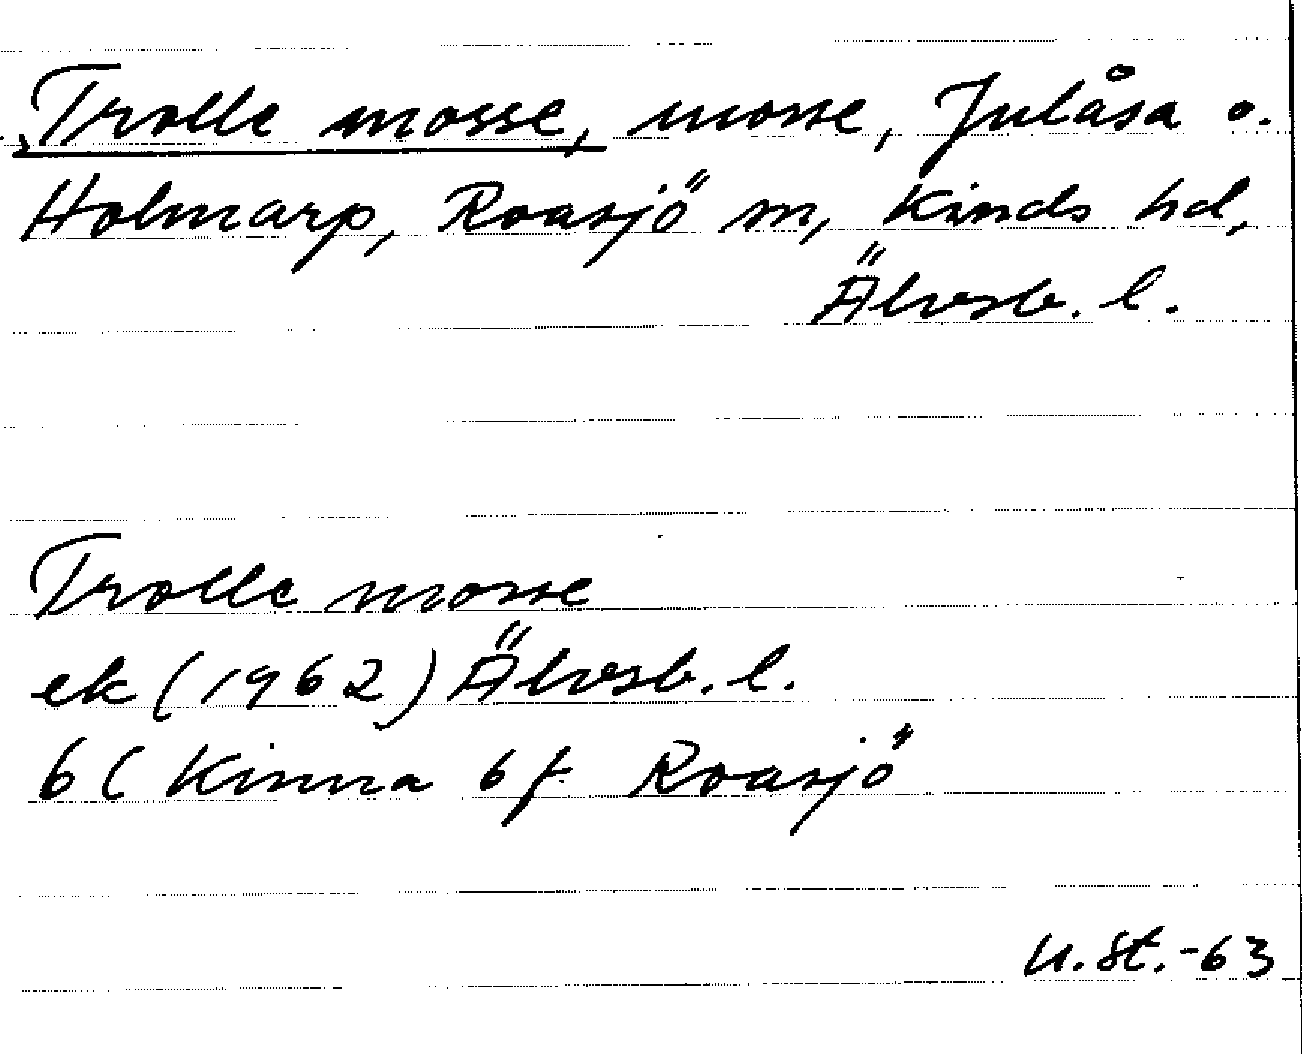 Trolle mosse, mosse, Julåsa o.
Holmarp, Roasjö sn, Kinds hd,
Älvsb. l.
Trolle mosse
ek (1962) Älvsb. l.
6C Kinna 6f Roasjö
U.St.-63